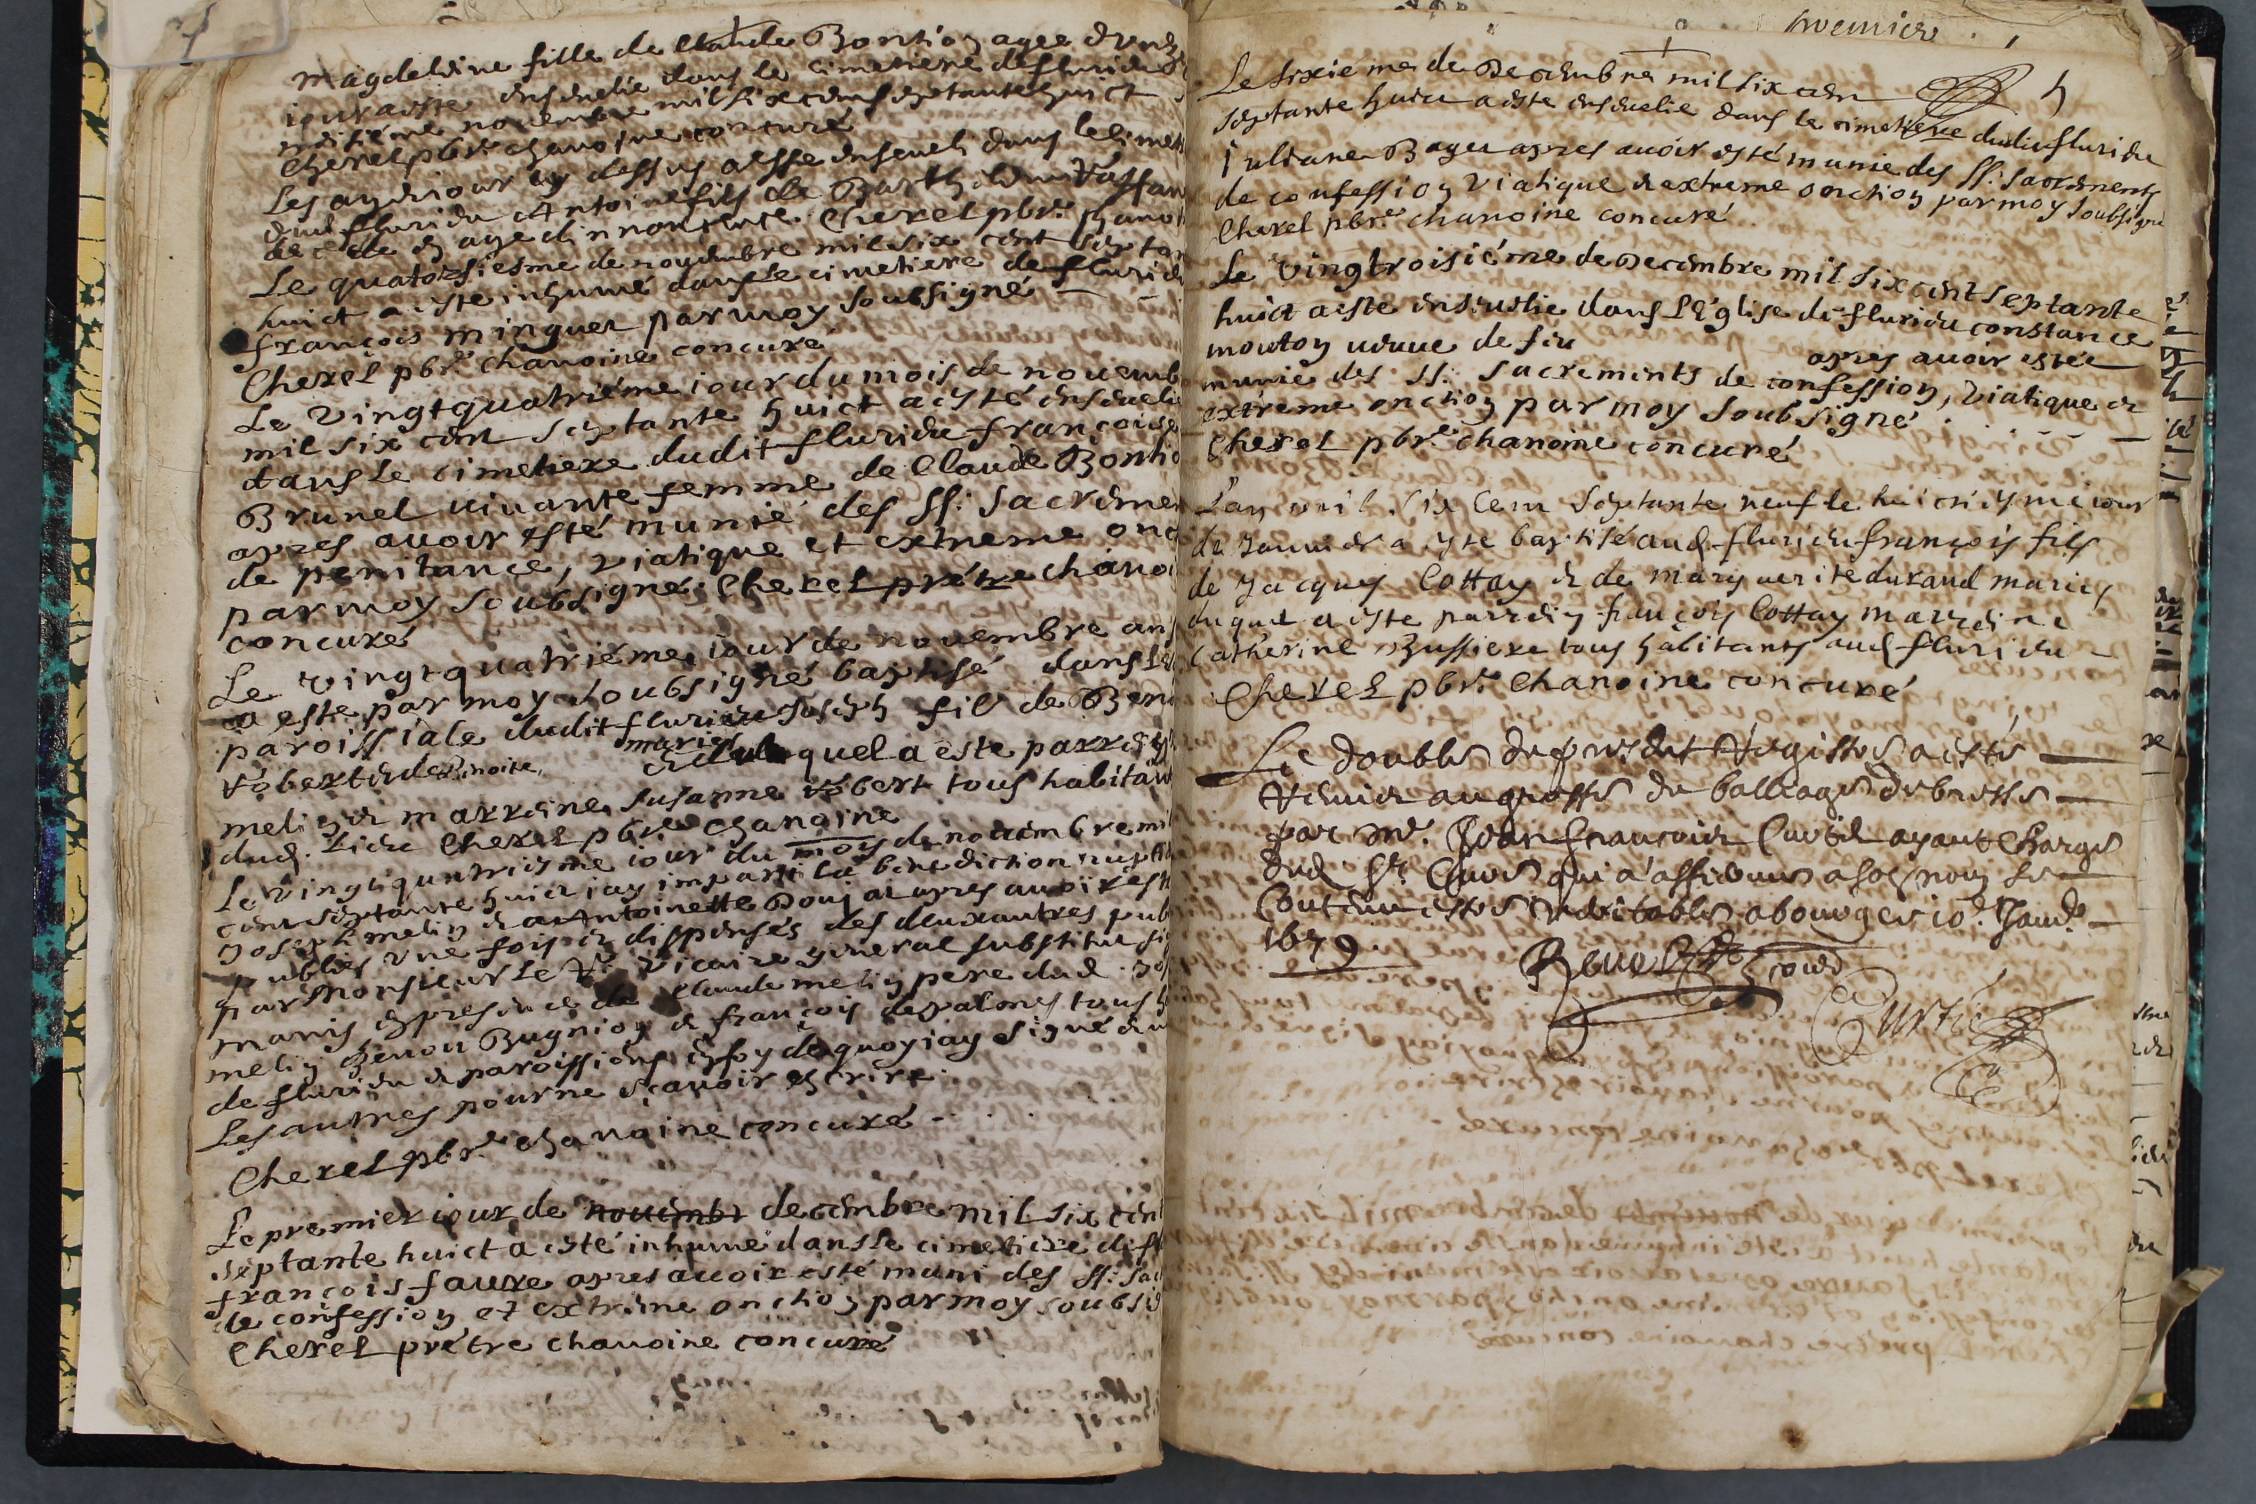 magdeleine fille de Claude Bontion agee d'un
jour a este ensevelie dans le cimetiere de fluride
novembre mil six cens septante huict
Cherel pbr.e chanoine concuré
Les an et jour cy dessus a este enseveli dans le cimet
dud fluride Antoine fils de Barthelemi
decede en age d'innocence. Cherel pbr.e chanoi
Le quatorsiesme de novembre mil six cent septan
huict a este inhumé dans le cimetiere de fluride
françois minguet par moy soubsigné
Cherel pbr.e chanoine concuré
Le vingtquatriéme iour du mois de novemb
mil six cent septante huict a esté ensevelie
dans le cimetiere dudit fluride françoise
Brunel vivante femme de Claude Bontio
apres avoir esté munie des ss. sacremen
de penitance, viatique et extreme onc
par moy soubsigné Cherel prétre chanoi
concuré
Le vingtquatriéme iour de novembre an
a este par moy soubsigné baptisé dans l'e
paroissiale dudit fluride Joseph fils de Ben
mariés
quel a este parrein
meli et marreine Susanne Robert tous habitan
dud. lieu Cherel pbr.e chanoine
Le vingtquatriesme iour du moys de novembre mil
cent septante huict iay imparti la benediction nuptia
Joseph melin et a Antoinette apres avoir este
publies une fois et dispensés des deux autres pub
par Monsieur le vicaire general substitut
manis en presence de Claude melin pere dud. Jos
melin benoit Bugnion et françois depalmes tous h
de fluridu et paroissiens en foy de quoy iay signé et n
Les autres pour ne sçavoir escrire.
Cherel pbr.e chanoine concuré
Le premier iour de novembr decembre mil six cent
septante huict a esté inhumé dans le cimetiere de fl
françois faure apres avoir esté muni des ss. sac
de confession et extreme onction par moy soubsig
Cherel prétre chanoine concuré
premier
Le sixieme de Decembre mil six cent
septante huict a este ensevelie dans le cimetiere dudit fluride
Juliane Bager apres avoir esté munie des ss. sacrements
de confession viatique et extreme onction par moy soubsigné
Cherel pbr.e chanoine concuré
Le vingtroisiéme de Decembre mil six cent septante
huict a este ensevelie dans l'Eglise de fluridu constance
mouton veuve de feu apres avoir estée
munie des ss. sacrements de confession, viatique et
extreme onction par moy soubsigné
Cherel pbr.e chanoine concuré
L'an mil six cent septante neuf le huictiesme iour
de Janvier a este baptisé aud fluridu françois fils
de Jacques Cottay et de marguerite durand maries
duquel a este parrein françois Cottay marreine
Catherine Bussiere tous habitants aud fluridu
Cherel pbr.e Chanoine concuré
Le double du present Registre a esté
remis au greffe du balliage de bresse
par m.e Jean francois Curtil ayant charge
dud s.r Curé qui a affirmé le
Contenu estre veritable a bourg ce 10.e Janv.r
1679.